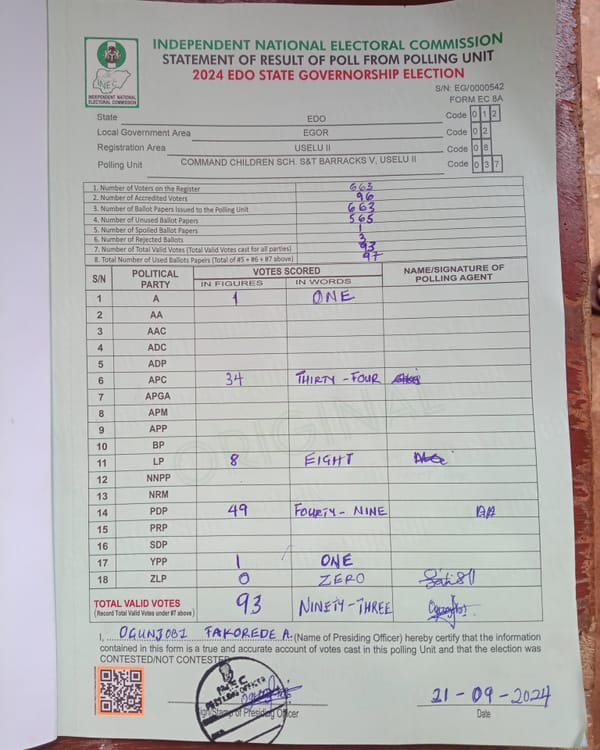 INDEPENDENT NATIONAL ELECTORAL COMMISSION
STATEMENT OF RESULT OF POLL FROM POLLING UNIT
2024 EDO STATE GOVERNORSHIP ELECTION
INEC
INDEPENDENT NATIONAL
ELECTORAL COMMISSION
S/N: EG/0000542
FORM EC 8A
State EDO Code 0 1 2
Local Government Area EGOR Code 0 2
Registration Area USELU II Code 0 8
Polling Unit COMMAND CHILDREN SCH. S&T BARRACKS V, USELU II Code 0 3 7
1. Number of Voters on the Register 663
2. Number of Accredited Voters 96
3. Number of Ballot Papers Issued to the Polling Unit 663
4. Number of Unused Ballot Papers 565
5. Number of Spoiled Ballot Papers 1
6. Number of Rejected Ballots 3
7. Number of Total Valid Votes (Total Valid Votes cast for all parties) 93
8. Total Number of Used Ballots Papers (Total of #5 + #6 + #7 above) 97
S/N POLITICAL PARTY VOTES SCORED NAME/SIGNATURE OF POLLING AGENT
IN FIGURES IN WORDS
1 A 1 ONE
2 AA
3 AAC
4 ADC
5 ADP
6 APC 34 THIRTY-FOUR
7 APGA
8 APM
9 APP
10 BP
11 LP 8 EIGHT
12 NNPP
13 NRM
14 PDP 49 FOURTY-NINE
15 PRP
16 SDP
17 YPP 1 ONE
18 ZLP 0 ZERO
ORIGINAL
TOTAL VALID VOTES 93 NINETY-THREE
(Record Total Valid Votes under #7 above)
I, OGUNJOBI FAKOREDE A. (Name of Presiding Officer) hereby certify that the information
contained in this form is a true and accurate account of votes cast in this polling Unit and that the election was
CONTESTED/NOT CONTESTED
INEC
PRESIDING OFFICER
21-09-2024
Sign/Stamp of Presiding Officer Date